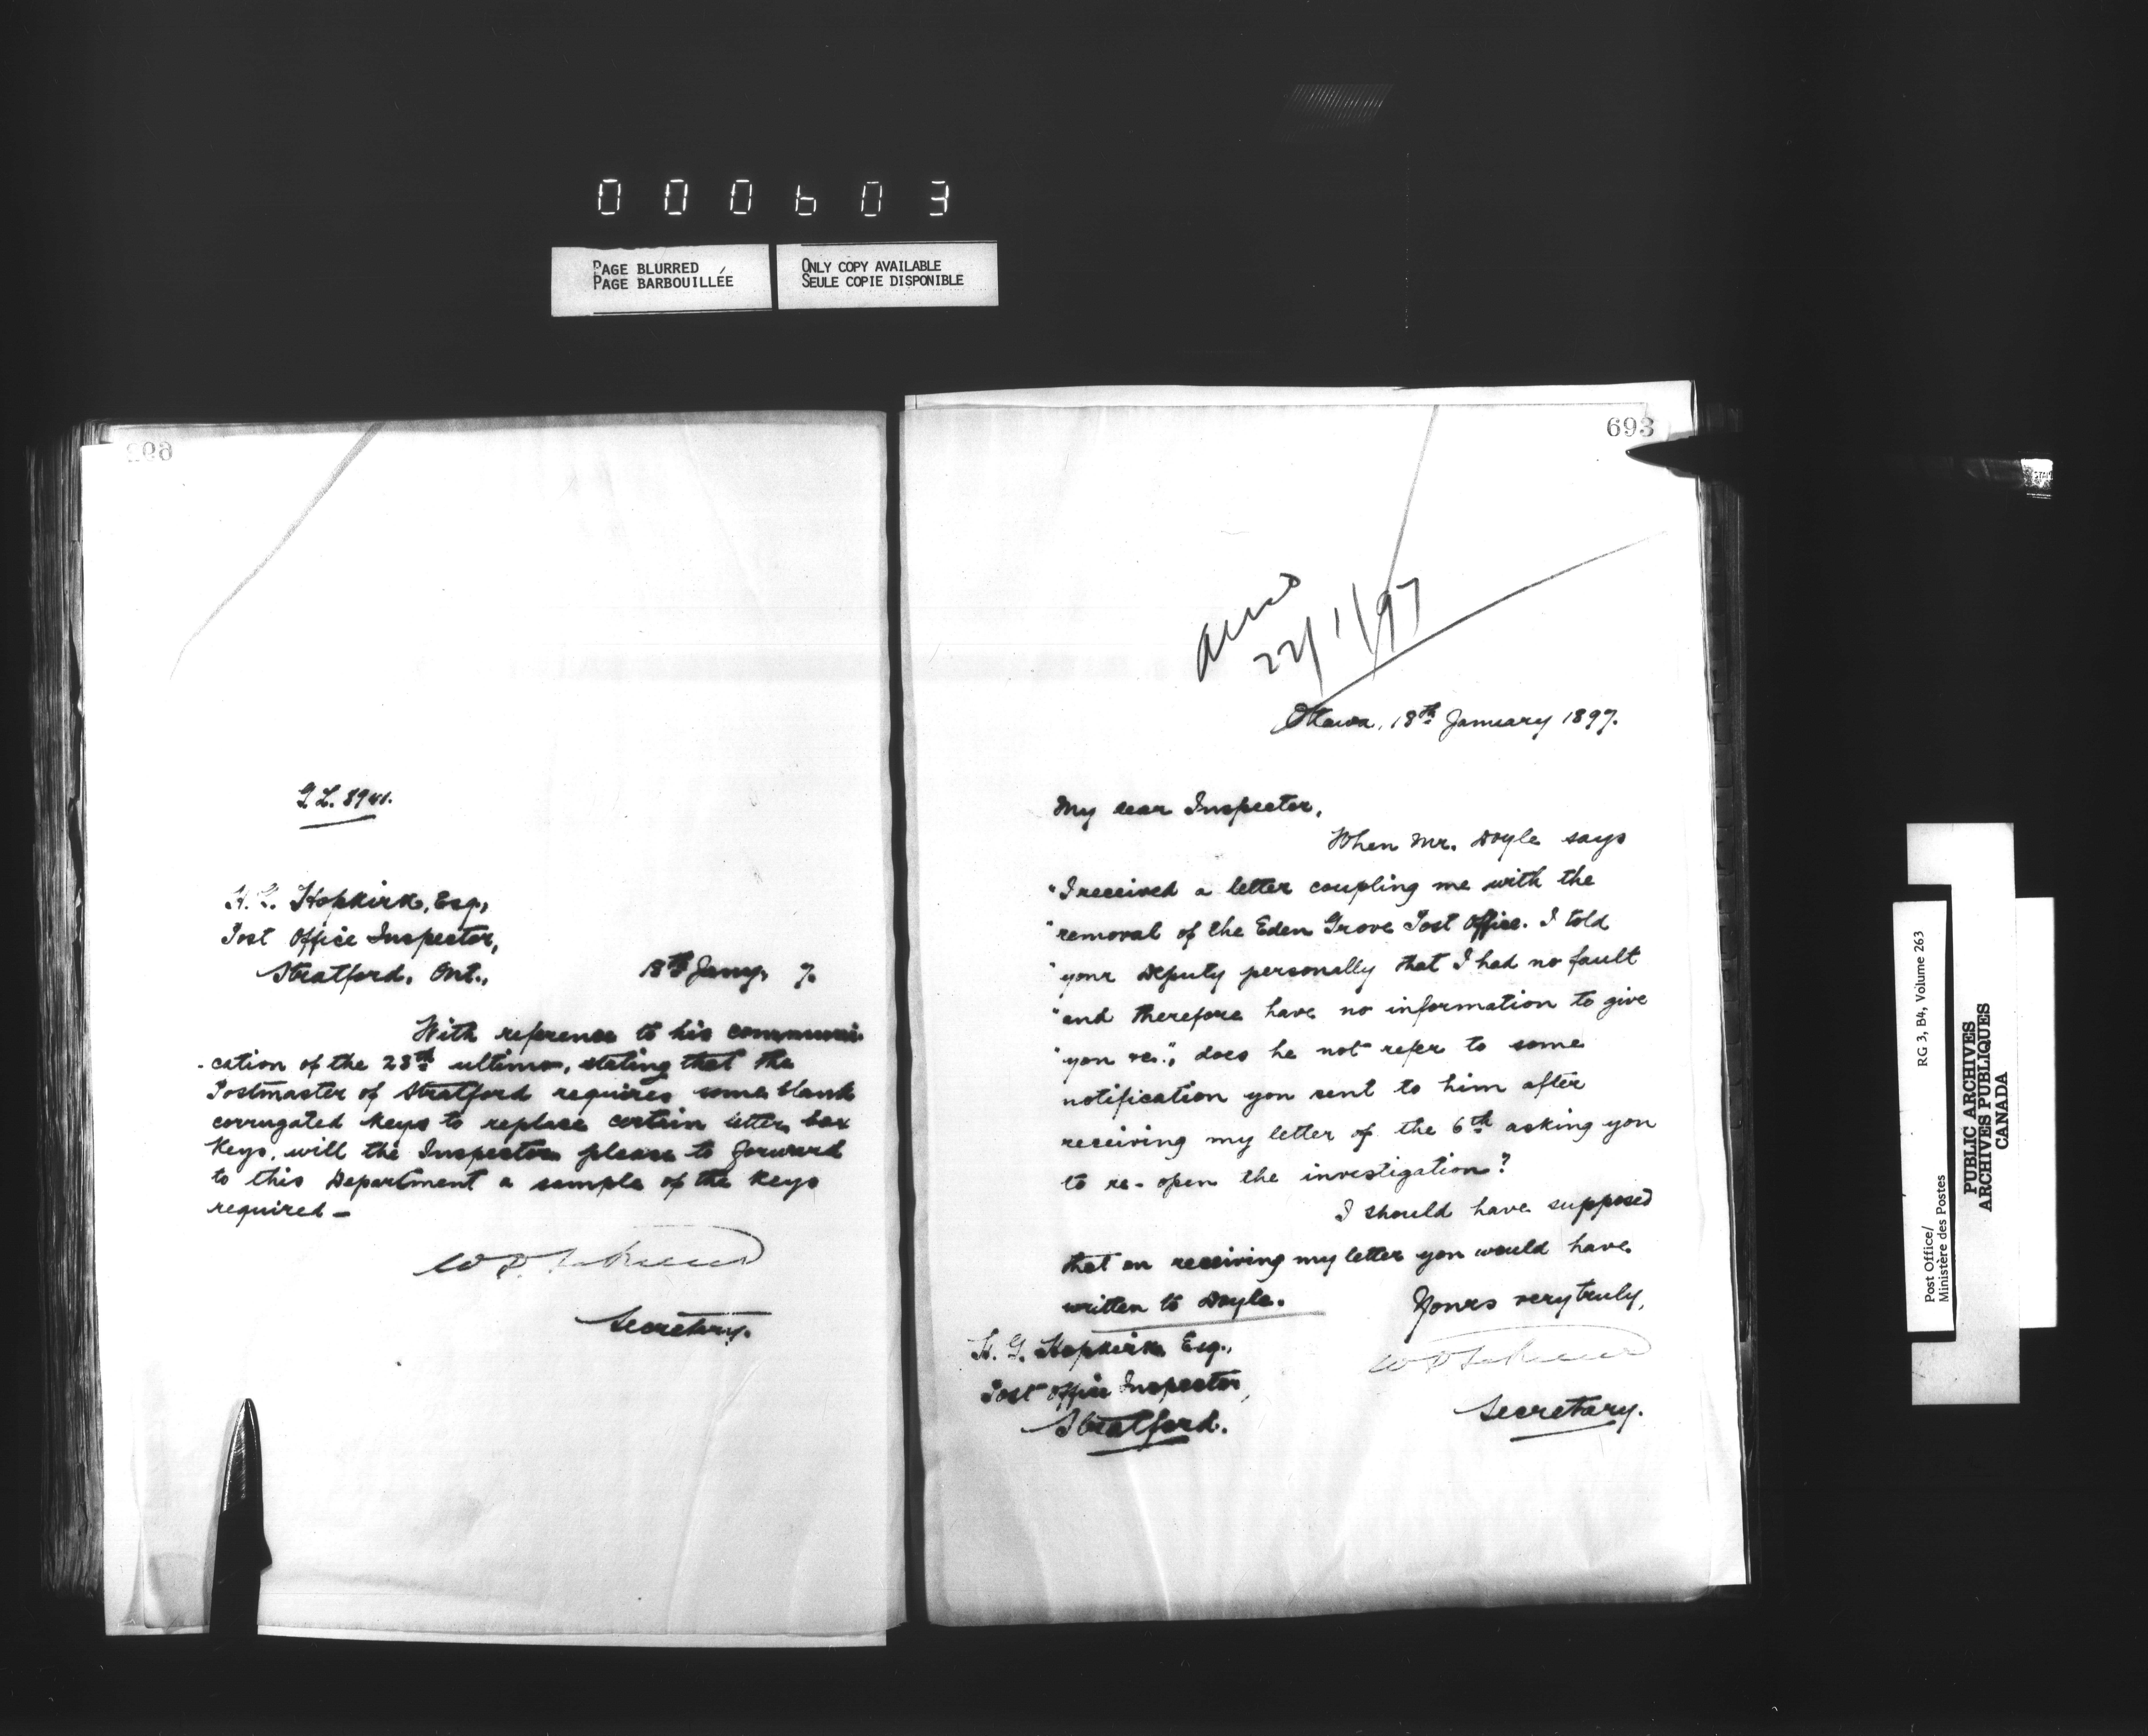 000603
PAGE BLURRED
PAGE BARBOUILLÉE
ONLY COPY AVAILABLE
SEULE COPIE DISPONIBLE
H. G. Hopkirk, Esq.,
Post Office Inspector,
Stratford, Ont.,
18th Jany. 7.
With reference to his communi-
-cation of the 28th ultimo, stating that the
Postmaster of Stratford requires some blank
corrugated keys to replace certain letter box
keys, will the Inspector please to forward
to this Department a sample of the keys
required —
Secretary.
693
22/1/97
Ottawa, 18th January 1897.
My dear Inspector,
When Mr. Doyle says
"I received a letter coupling me with the
"removal of the Eden Grove Post Office. I told
"your Deputy personally that I had no fault
"and therefore have no information to give
"you re.", does he not refer to some
notification you sent to him after
receiving my letter of the 6th asking you
to re-open the investigation?
I should have supposed
that on receiving my letter you would have
written to Doyle.
Yours very truly,
H. G. Hopkirk Esq.,
Post Office Inspector,
Stratford.
Secretary.
Post Office/
Ministère des Postes
RG 3, B4, Volume 263
PUBLIC ARCHIVES
ARCHIVES PUBLIQUES
CANADA